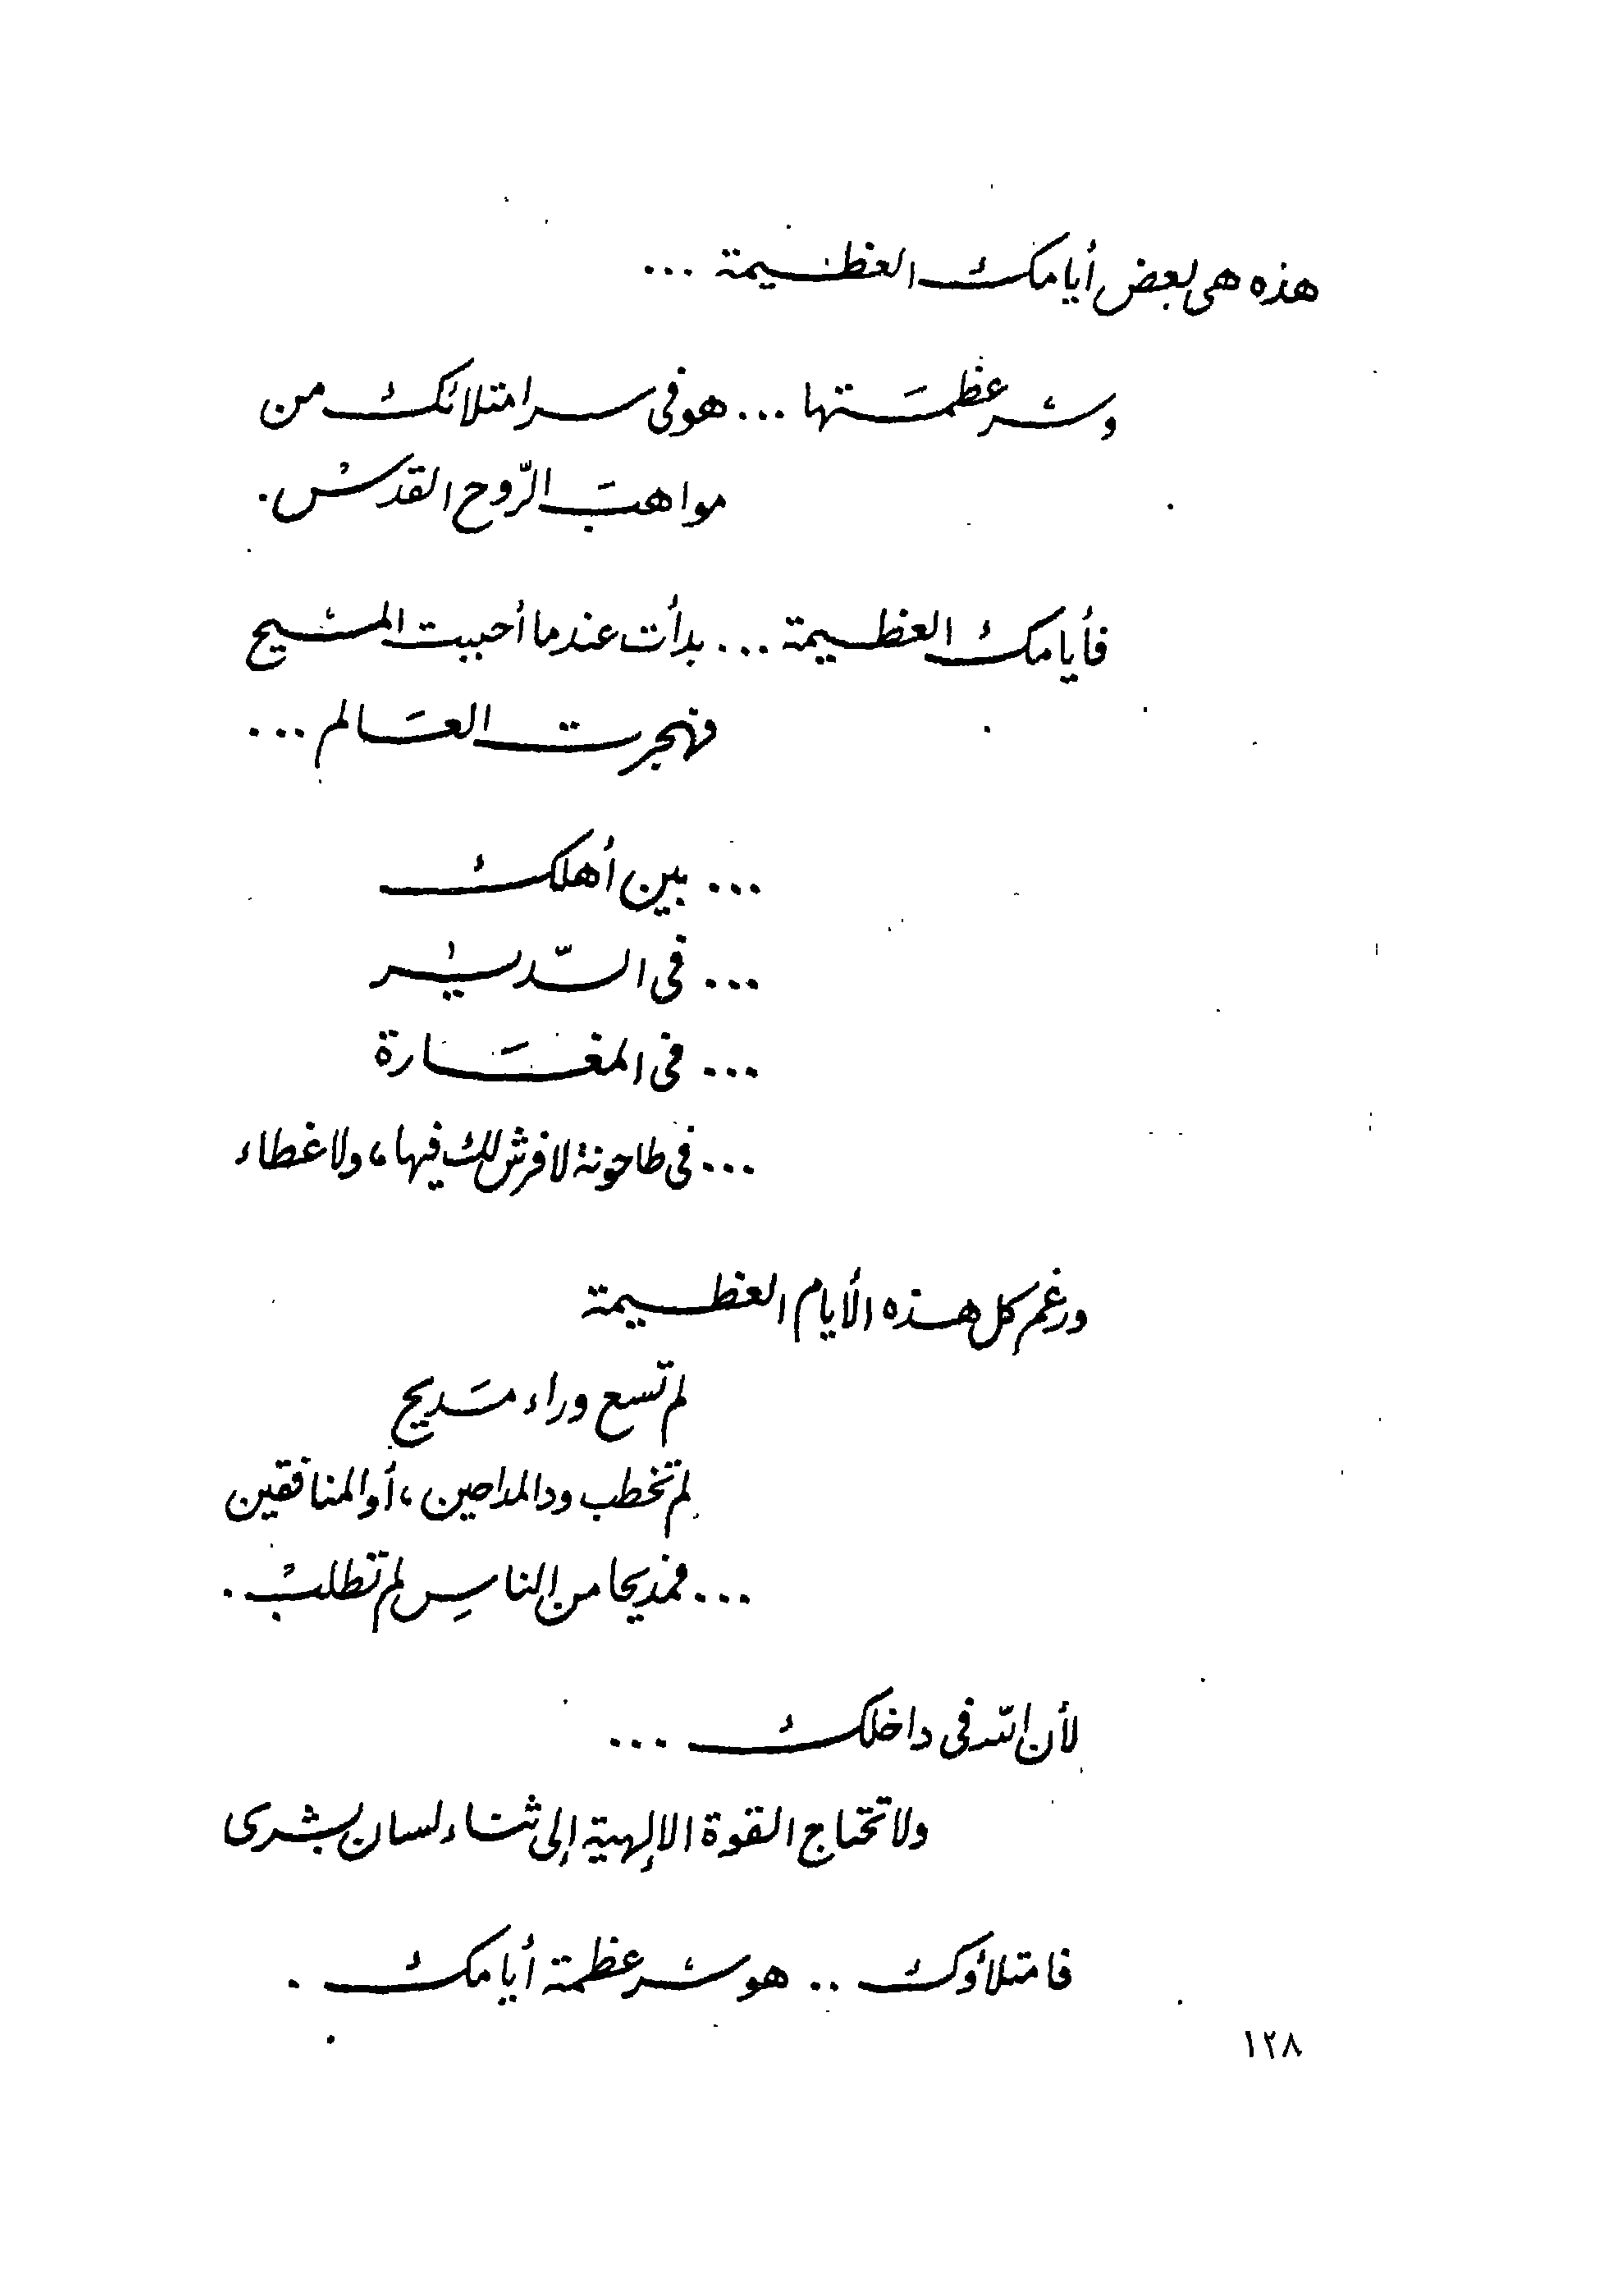 هذه هى بعض أيامك العظيمة ...
وسر عظمتها ... هو فى سر امتلائك من
مواهب الرّوح القدس .
فأيامك العظيمة ... بدأت عندما أحببت المسيح
فهجرت العالم ...
... بين أهلك
... فى الدّير
... فى المغارة
... فى طاحونة لا فرش لك فيها ، ولا غطاء
ورغم كل هذه الأيام العظيمة
لم تسع وراء مديح
لم تخطب ود المداحين ، أو المنافقين
... فمديحا من الناس لم تطلب .
لأن الله فى داخلك ...
ولا تحتاج القوة الإلهية إلى ثناء لسان بشرى
فامتلاؤك .. هو سر عظمة أيامك .
١٢٨